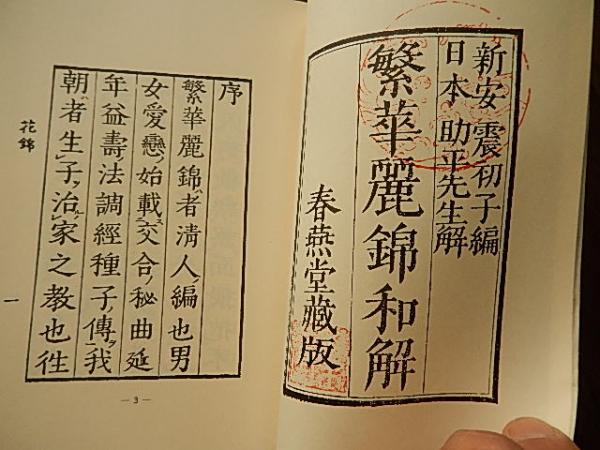 新安 震初子編
日本 助平先生解
繁華麗錦和解
春燕堂藏版
序
繁華麗錦者清人ノ編也男
女愛戀ノ始載交合ノ秘曲延
年益壽ノ法調經種子ノ傳我
朝ノ者生子ヲ治家之教也徃
花錦
一
— 3 —